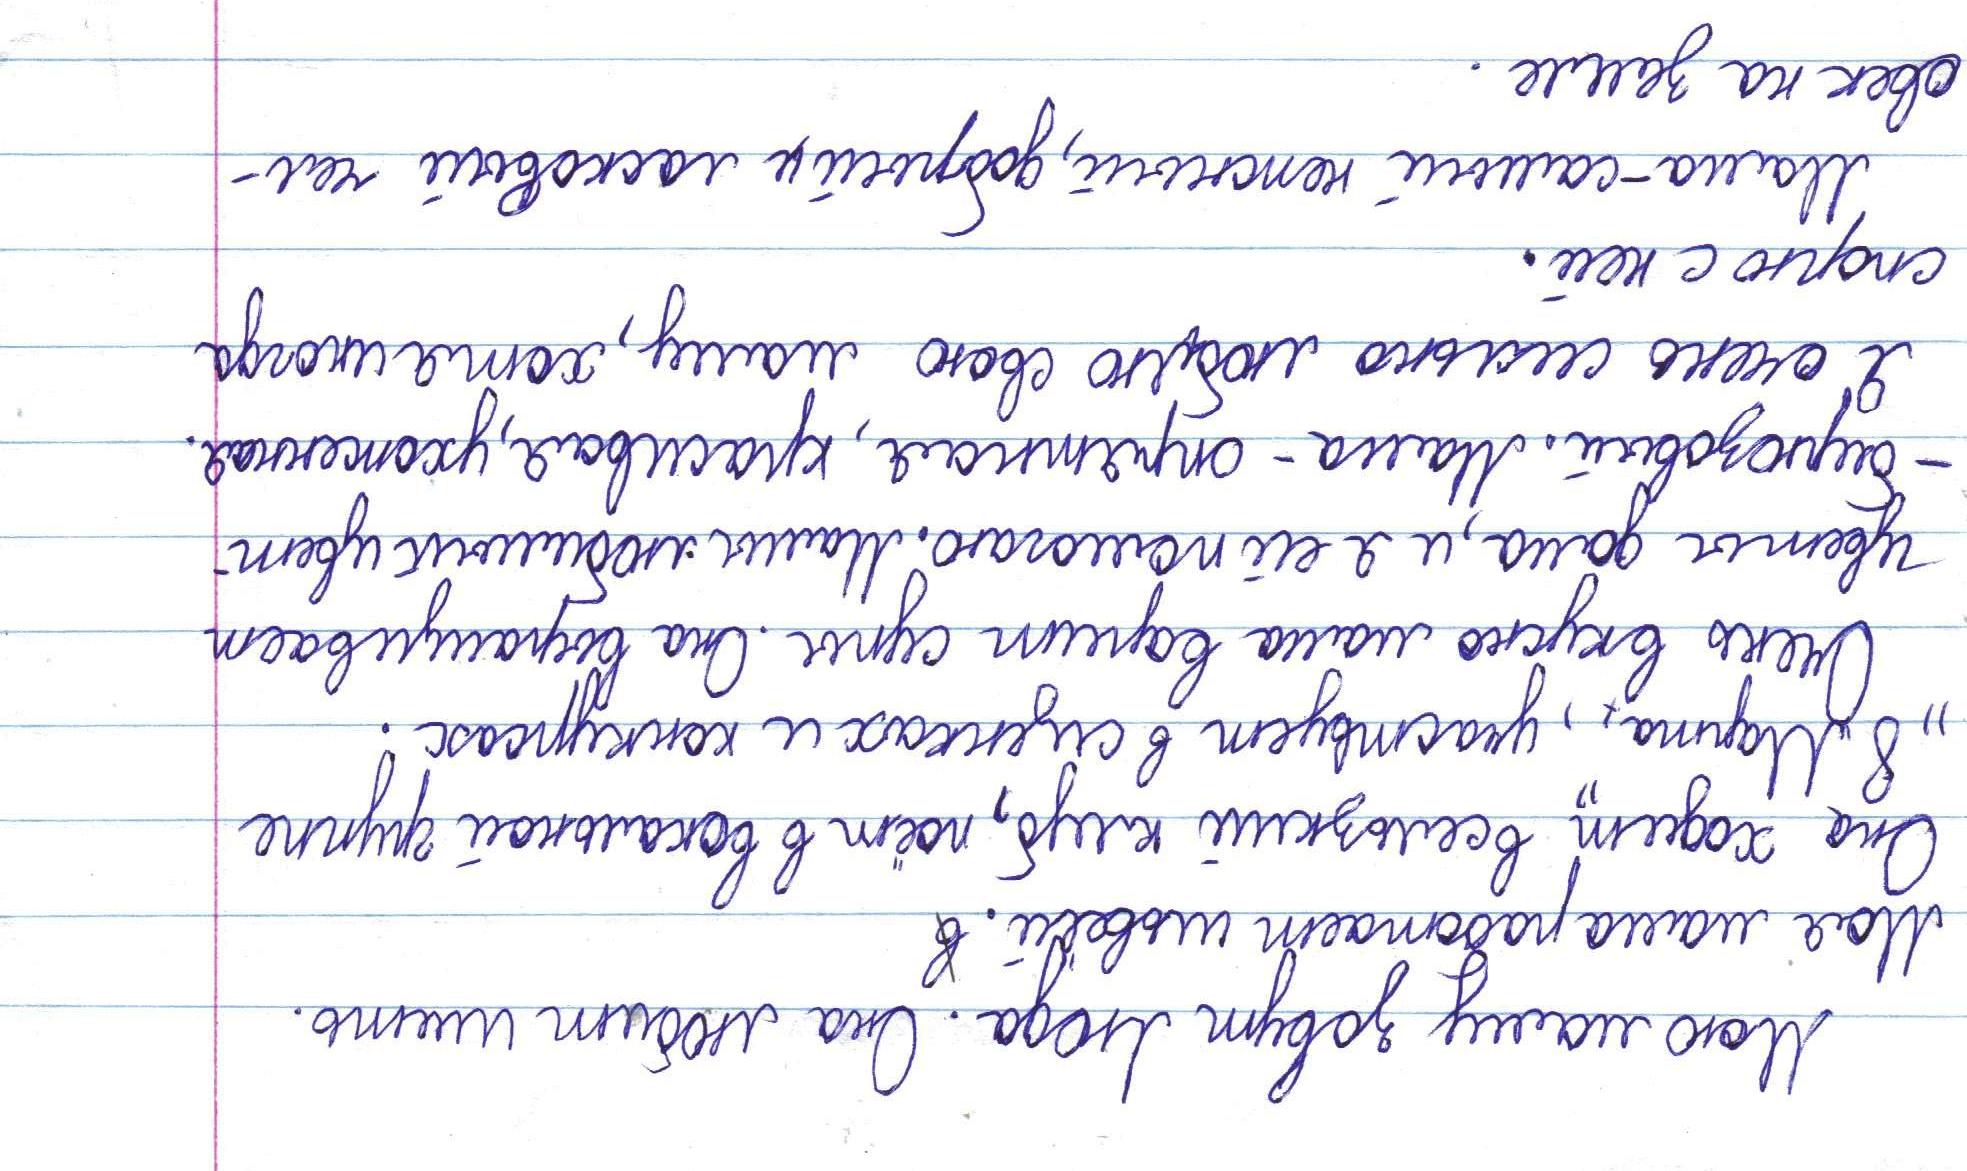 Мою маму зовут Люда. Она любит шить.
Моя мама работает швеёй.
Она ходит в сельзкий клуб, поёт в вокальной группе
„8 Марта", участвует в сценках и конкурсах.
Очень вкусно мама варит супы. Она выращивает
цветы дома, и я ей помогаю. Мамин любимый цвет-
-бирюзовый. Мама - опрятная, красивая, ухоженная.
Я очень сильно люблю свою маму, хотя иногда
спорю с ней.
Мама-самый нежный, добрый и ласковый чел-
овек на земле.